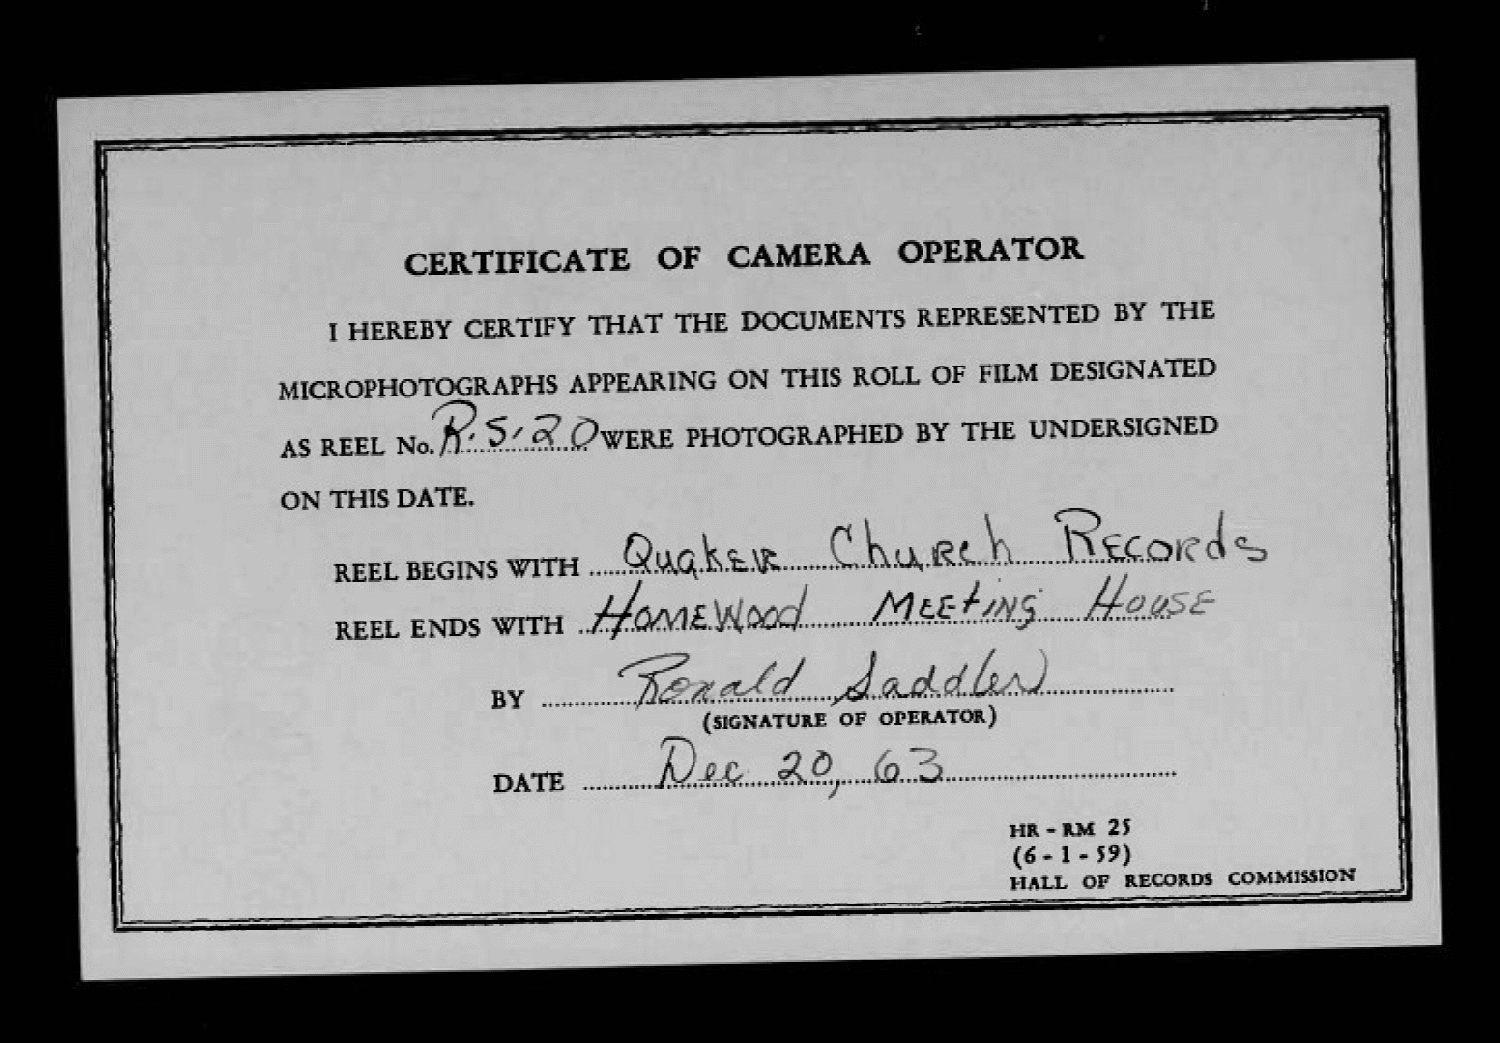 CERTIFICATE OF CAMERA OPERATOR
I HEREBY CERTIFY THAT THE DOCUMENTS REPRESENTED BY THE
MICROPHOTOGRAPHS APPEARING ON THIS ROLL OF FILM DESIGNATED
AS REEL No. R.S.20 WERE PHOTOGRAPHED BY THE UNDERSIGNED
ON THIS DATE.
REEL BEGINS WITH Quaker Church Records
REEL ENDS WITH HomeWood Meeting House
BY Ronald Saddler
(SIGNATURE OF OPERATOR)
DATE Dec 20, 63
HR - RM 25
(6 - 1 - 59)
HALL OF RECORDS COMMISSION